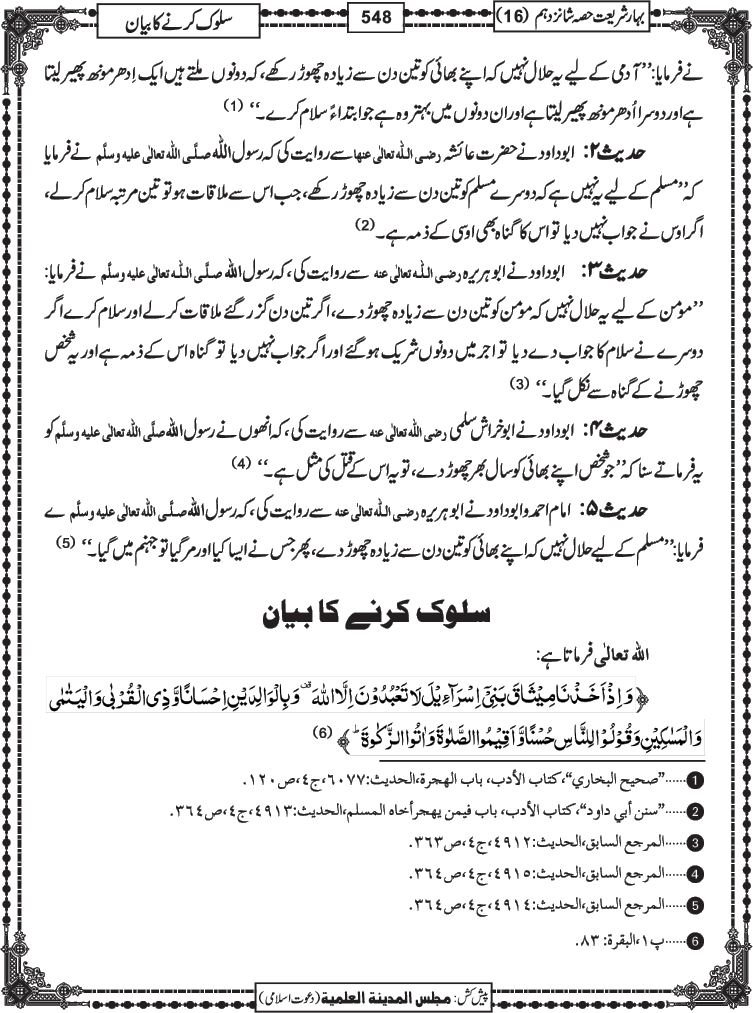 بہار شریعت حصہ شانزدہم (16)
548
سلوک کرنے کا بیان
نے فرمایا: ’’آدمی کے لیے یہ حلال نہیں کہ اپنے بھائی کو تین دن سے زیادہ چھوڑ رکھے، کہ دونوں ملتے ہیں ایک اِدھر مونھ پھیر لیتا
ہے اور دوسرا اُدھر مونھ پھیر لیتا ہے اور ان دونوں میں بہتر وہ ہے جو ابتداءً سلام کرے۔‘‘ (1)
حدیث ۲: ابوداود نے حضرت عائشہ رضی اللہ تعالٰی عنہا سے روایت کی کہ رسول اللہ صلَّی اللہ تعالٰی علیہ وسلَّم نے فرمایا
کہ ’’مسلم کے لیے یہ نہیں ہے کہ دوسرے مسلم کو تین دن سے زیادہ چھوڑ رکھے، جب اس سے ملاقات ہو تو تین مرتبہ سلام کرلے،
اگر اوس نے جواب نہیں دیا تو اس کا گناہ بھی اوسی کے ذمہ ہے۔ (2)
حدیث ۳: ابوداود نے ابوہریرہ رضی اللہ تعالٰی عنہ سے روایت کی، کہ رسول اللہ صلَّی اللہ تعالٰی علیہ وسلَّم نے فرمایا:
’’مومن کے لیے یہ حلال نہیں کہ مومن کو تین دن سے زیادہ چھوڑ دے، اگر تین دن گزر گئے ملاقات کرلے اور سلام کرے اگر
دوسرے نے سلام کا جواب دے دیا تو اجر میں دونوں شریک ہوگئے اور اگر جواب نہیں دیا تو گناہ اس کے ذمہ ہے اور یہ شخص
چھوڑنے کے گناہ سے نکل گیا۔‘‘ (3)
حدیث ۴: ابوداود نے ابوخراش سلمی رضی اللہ تعالٰی عنہ سے روایت کی، کہ انھوں نے رسول اللہ صلَّی اللہ تعالٰی علیہ وسلَّم کو
یہ فرماتے سنا کہ ’’جو شخص اپنے بھائی کو سال بھر چھوڑ دے، تو یہ اس کے قتل کی مثل ہے۔‘‘ (4)
حدیث ۵: امام احمد و ابوداود نے ابوہریرہ رضی اللہ تعالٰی عنہ سے روایت کی، کہ رسول اللہ صلَّی اللہ تعالٰی علیہ وسلَّم ے
فرمایا: ’’مسلم کے لیے حلال نہیں کہ اپنے بھائی کو تین دن سے زیادہ چھوڑ دے، پھر جس نے ایسا کیا اور مرگیا تو جہنم میں گیا۔‘‘ (5)
سلوک کرنے کا بیان
اللہ تعالٰی فرماتا ہے:
﴿وَ اِذْ اَخَذْنَا مِیْثَاقَ بَنِیْۤ اِسْرَآءِیْلَ لَا تَعْبُدُوْنَ اِلَّا اللّٰهَ ۫ وَ بِالْوَالِدَیْنِ اِحْسَانًا وَّ ذِی الْقُرْبٰى وَ الْیَتٰمٰى
وَ الْمَسٰكِیْنِ وَ قُوْلُوْا لِلنَّاسِ حُسْنًا وَّ اَقِیْمُوا الصَّلٰوةَ وَ اٰتُوا الزَّكٰوةَ ؕ﴾ (6)
1......"صحیح البخاري"، کتاب الأدب، باب الهجرة، الحدیث: ٦٠٧٧، ج٤، ص١٢٠.
2......"سنن أبي داود"، کتاب الأدب، باب فیمن یهجر أخاه المسلم، الحدیث: ٤٩١٣، ج٤، ص٣٦٤.
3......المرجع السابق، الحدیث: ٤٩١٢، ج٤، ص٣٦٣.
4......المرجع السابق، الحدیث: ٤٩١٥، ج٤، ص٣٦٤.
5......المرجع السابق، الحدیث: ٤٩١٤، ج٤، ص٣٦٤.
6......پ١، البقرة: ٨٣.
پیش کش: مجلس المدینة العلمیة (دعوت اسلامی)